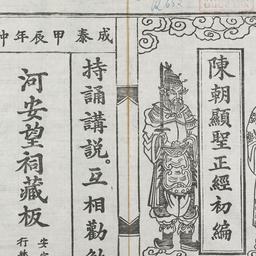 陳朝顯聖正經初編
成泰甲辰年仲
持誦講說。互相勸
河安望祠藏板